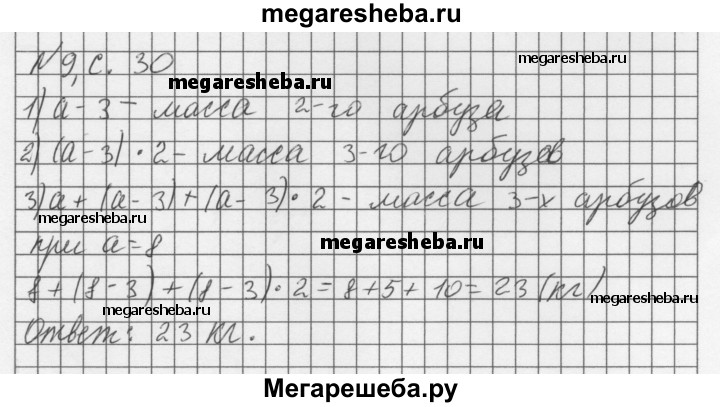 megaresheba.ru
№9, с. 30
megaresheba.ru
megaresheba.ru
1) а - 3 - масса 2-го арбуза
2) (а - 3) · 2 - масса 3-го арбузов
3) а + (а - 3) + (а - 3) · 2 - масса 3-х арбузов
megaresheba.ru
megaresheba.ru
при а = 8
megaresheba.ru
8 + (8 - 3) + (8 - 3) · 2 = 8 + 5 + 10 = 23 (кг)
megaresheba.ru
Ответ: 23 кг.
megaresheba.ru
Мегарешеба.ру